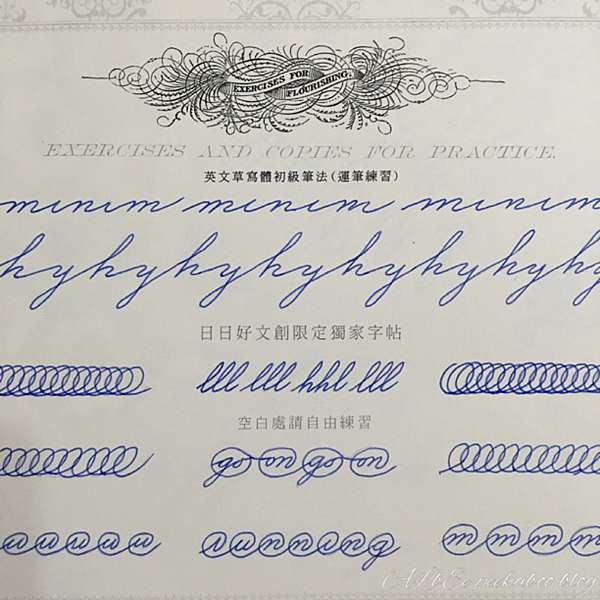 EXERCISES FOR
FLOURISHING.
EXERCISES AND COPIES FOR PRACTICE.
英文草寫體初級筆法(運筆練習)
minim minim minim
hyhyhyhyhyhyhy
日日好文創限定獨家字帖
lll lll hhl lll
空白處請自由練習
go on go on
a a a a a running m m m m